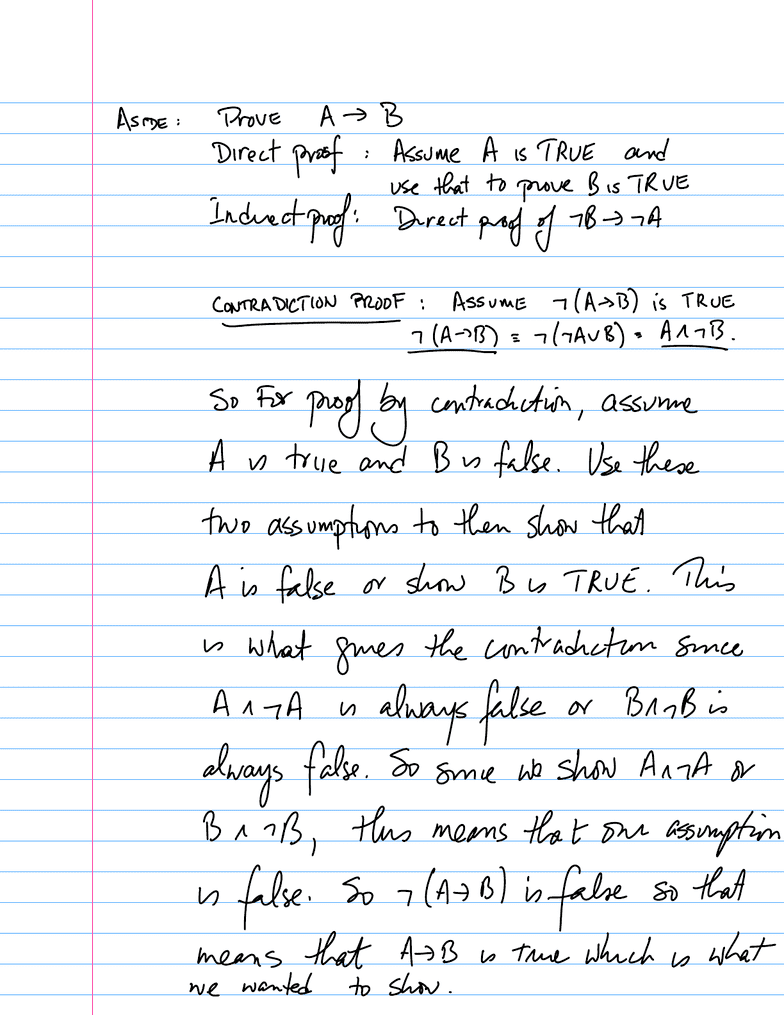 ASIDE: PROVE A → B
Direct proof : Assume A is TRUE and
use that to prove B is TRUE
Indirect proof: Direct proof of ¬B → ¬A
CONTRADICTION PROOF : ASSUME ¬(A→B) is TRUE
¬(A→B) ≡ ¬(¬A∪B) = A∧¬B.
So For proof by contradiction, assume
A is true and B is false. Use these
two assumptions to then show that
A is false or show B is TRUE. This
is what gives the contradiction since
A∧¬A is always false or B∧¬B is
always false. So since we show A∧¬A or
B∧¬B, this means that our assumption
is false. So ¬(A→B) is false so that
means that A→B is true which is what
we wanted to show.